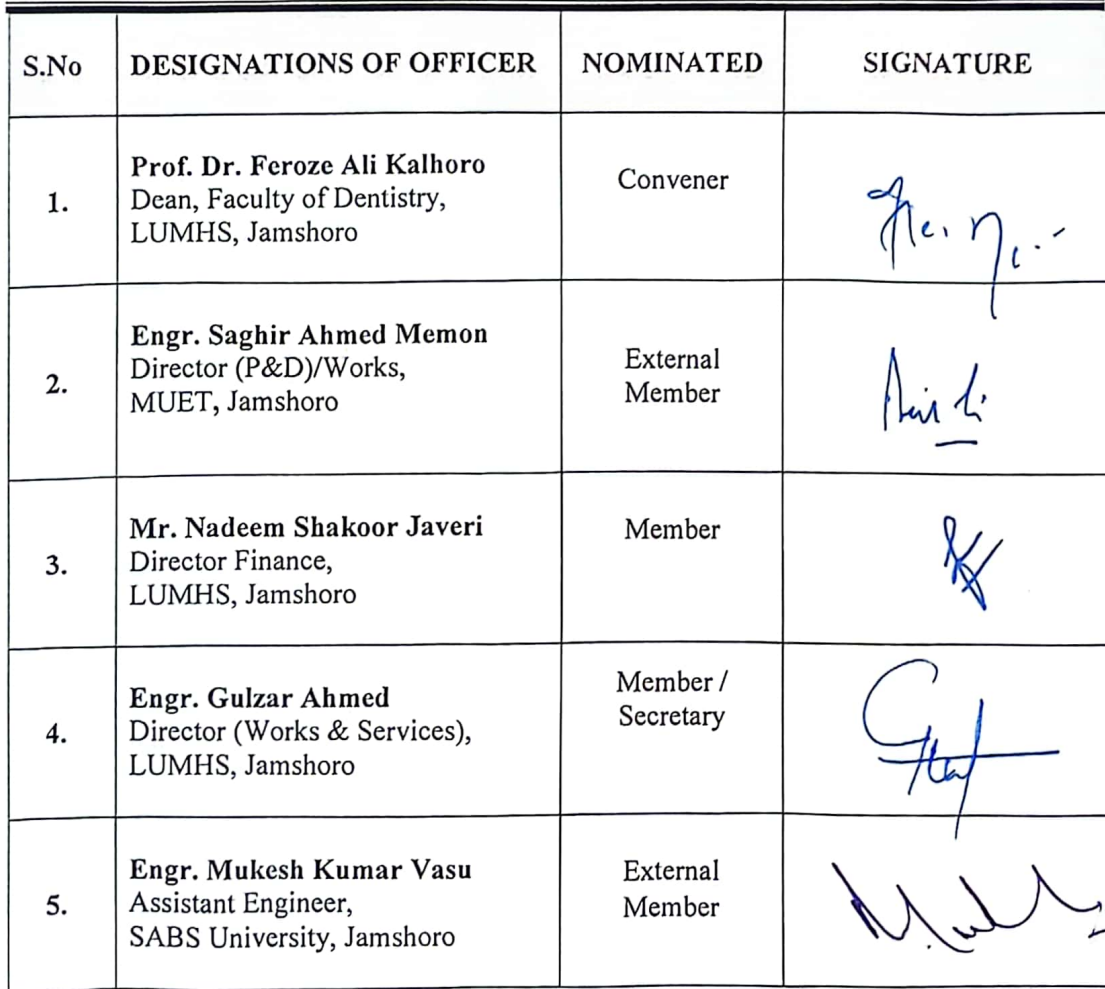 S.No DESIGNATIONS OF OFFICER NOMINATED SIGNATURE
1.
Prof. Dr. Feroze Ali Kalhoro
Dean, Faculty of Dentistry,
LUMHS, Jamshoro
Convener
2.
Engr. Saghir Ahmed Memon
Director (P&D)/Works,
MUET, Jamshoro
External
Member
3.
Mr. Nadeem Shakoor Javeri
Director Finance,
LUMHS, Jamshoro
Member
4.
Engr. Gulzar Ahmed
Director (Works & Services),
LUMHS, Jamshoro
Member /
Secretary
5.
Engr. Mukesh Kumar Vasu
Assistant Engineer,
SABS University, Jamshoro
External
Member